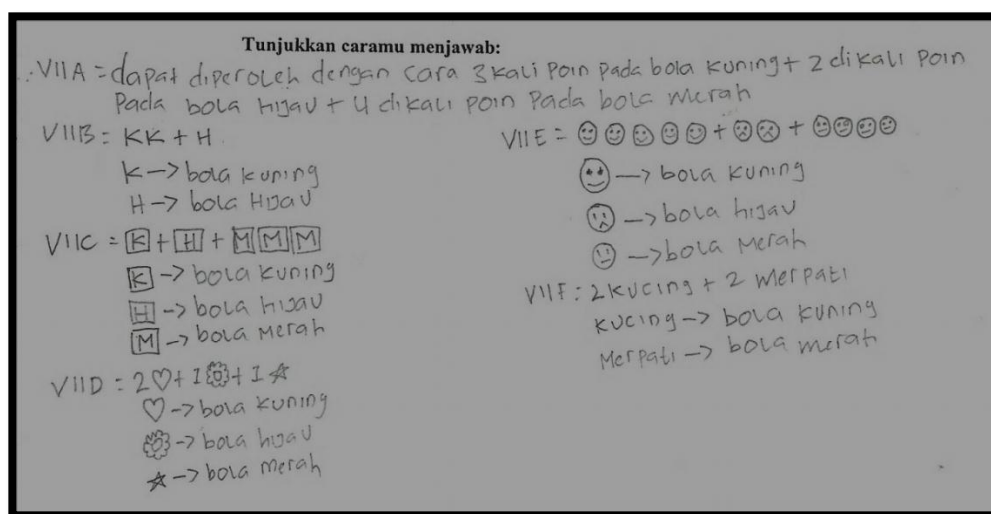 Tunjukkan caramu menjawab:
VIIA = dapat diperoleh dengan cara 3 kali poin pada bola kuning + 2 dikali poin
Pada bola hijau + 4 dikali poin Pada bola merah
VIIB = KK + H
K → bola kuning
H → bola Hijau
VIIC = K + H + M M M
K → bola kuning
H → bola hijau
M → bola merah
VIID = 2♡ + 1🏵 + 1☆
♡ → bola kuning
🏵 → bola hijau
☆ → bola merah
VIIE = 🙂🙂🙂🙂🙂 + ☹☹ + 😐😐😐😐
🙂 → bola kuning
☹ → bola hijau
😐 → bola merah
VIIF : 2 kucing + 2 merpati
kucing → bola kuning
Merpati → bola merah